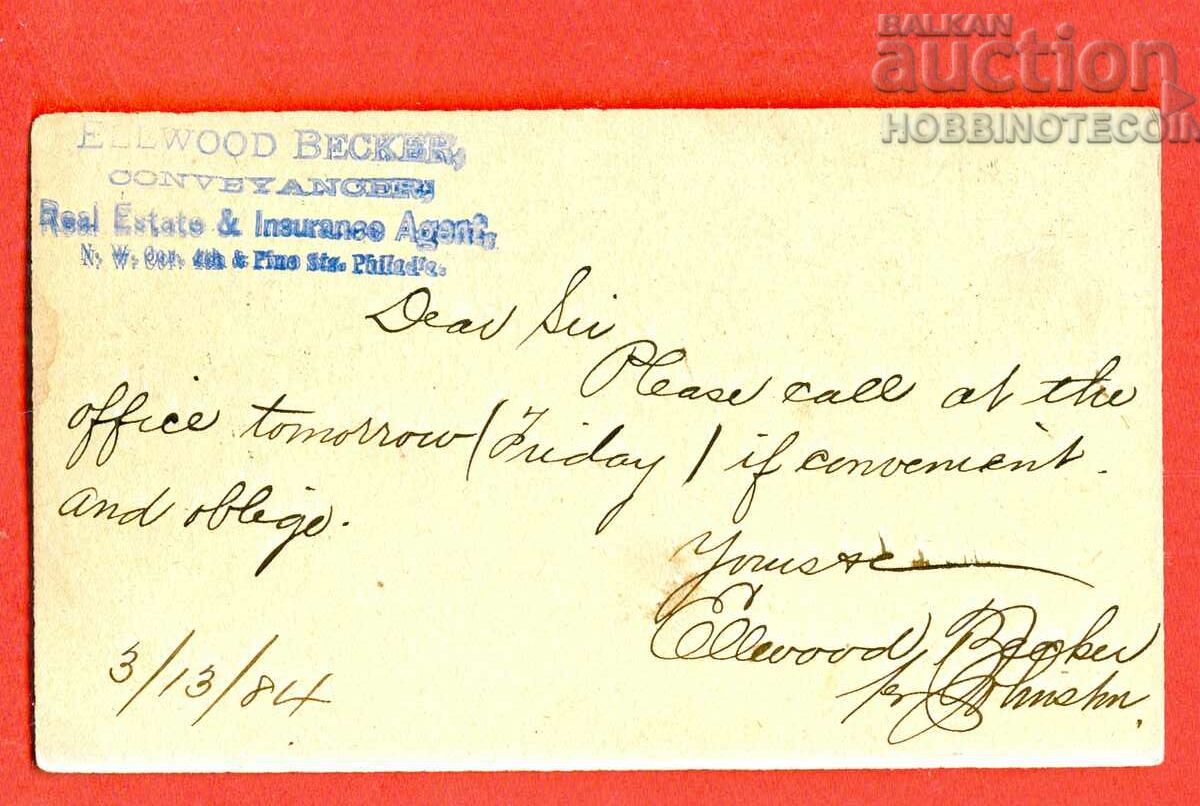 BALKAN
auction
HOBBINOTECOIN
ELLWOOD BECKER,
CONVEYANCER,
Real Estate & Insurance Agent,
N. W. Cor. 4th & Pine Sts. Philad'a.
Dear Sir
Please call at the
office tomorrow (Friday) if convenient.
and oblige.
Yours &c
Ellwood Becker
3/13/84
pr Johnston